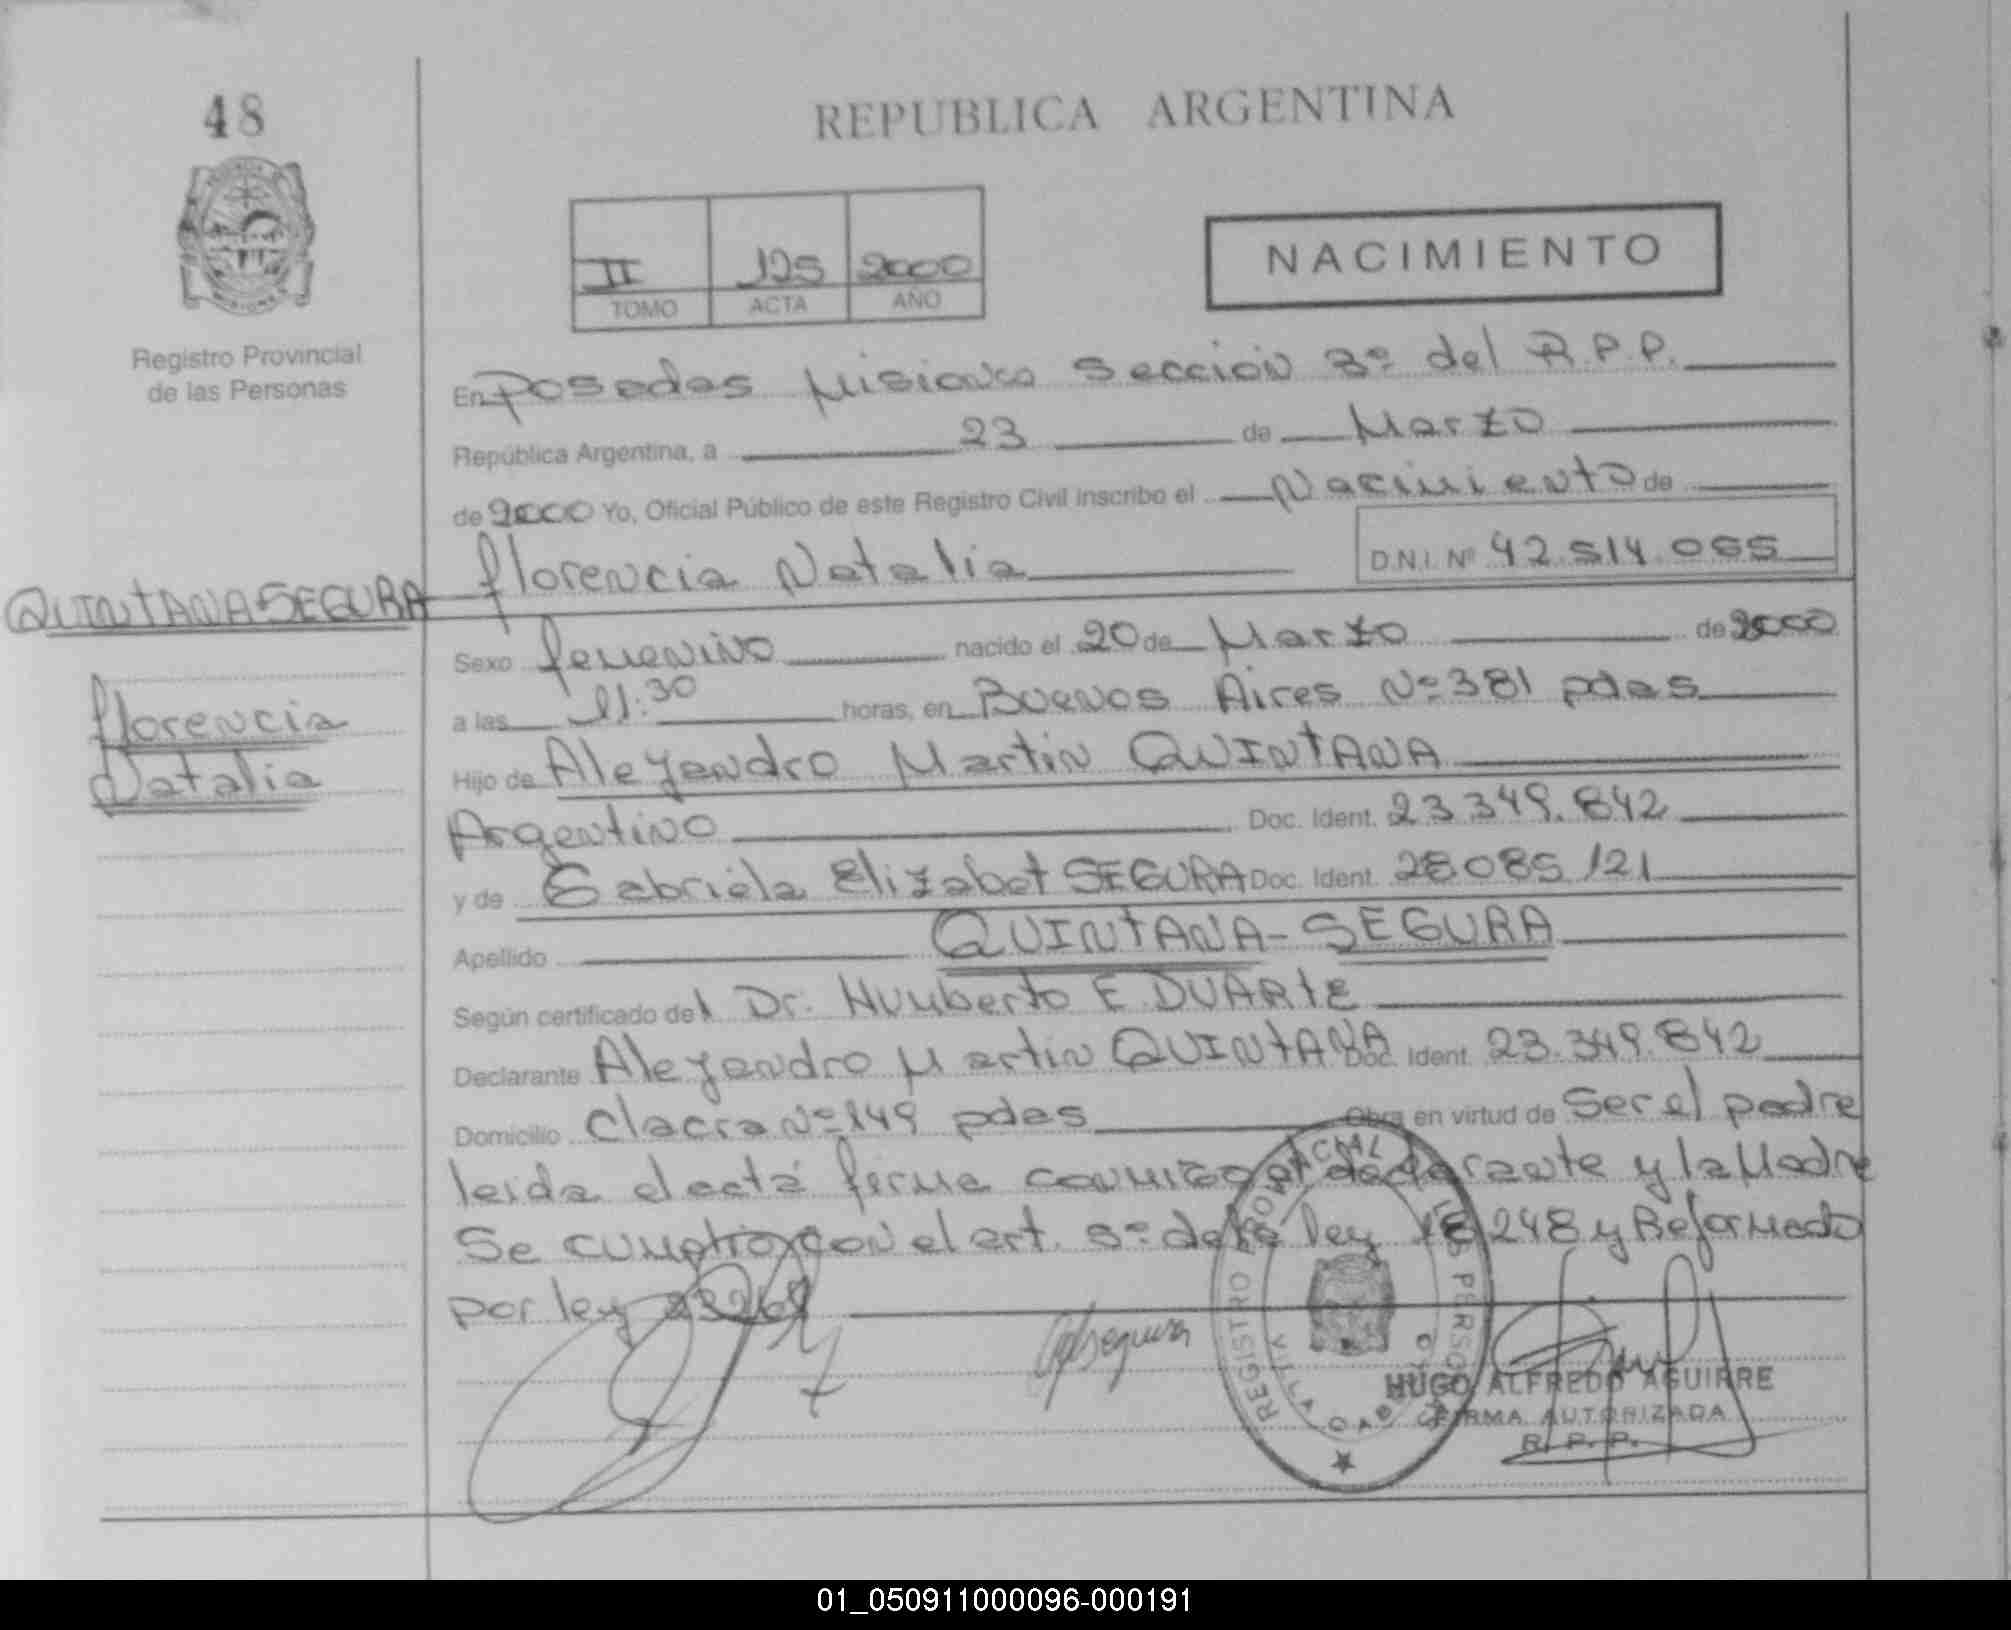 48
REPUBLICA ARGENTINA
II 125 2000
TOMO ACTA AÑO
NACIMIENTO
Registro Provincial
de las Personas
En Posadas Misiones Sección 3º del R.P.P.
República Argentina, a 23 de Marzo
de 2000 Yo, Oficial Público de este Registro Civil inscribo el Nacimiento de
Florencia Natalia D.N.I. Nº 42.514.055
QUINTANA SEGURA
Florencia
Natalia
Sexo femenino nacido el 20 de Marzo de 2000
a las 11:30 horas, en Buenos Aires Nº 381 pdas
Hijo de Alejandro Martin QUINTANA
Argentino Doc. Ident. 23.349.842
y de Gabriela Elizabet SEGURA Doc. Ident. 28085121
Apellido QUINTANA-SEGURA
Según certificado del Dr. Humberto E DUARTE
Declarante Alejandro Martin QUINTANA Doc. Ident. 23.349.842
Domicilio Chacra Nº 149 pdas Obra en virtud de Ser el padre
leida el acta firma conmigo el declarante y la Madre
Se cumplio con el art. 5º de la ley 18248 y Reformado
por ley
segura
REGISTRO PROVINCIAL DE LAS PERSONAS
HUGO ALFREDO AGUIRRE
FIRMA AUTORIZADA
R. P. P.
01_050911000096-000191